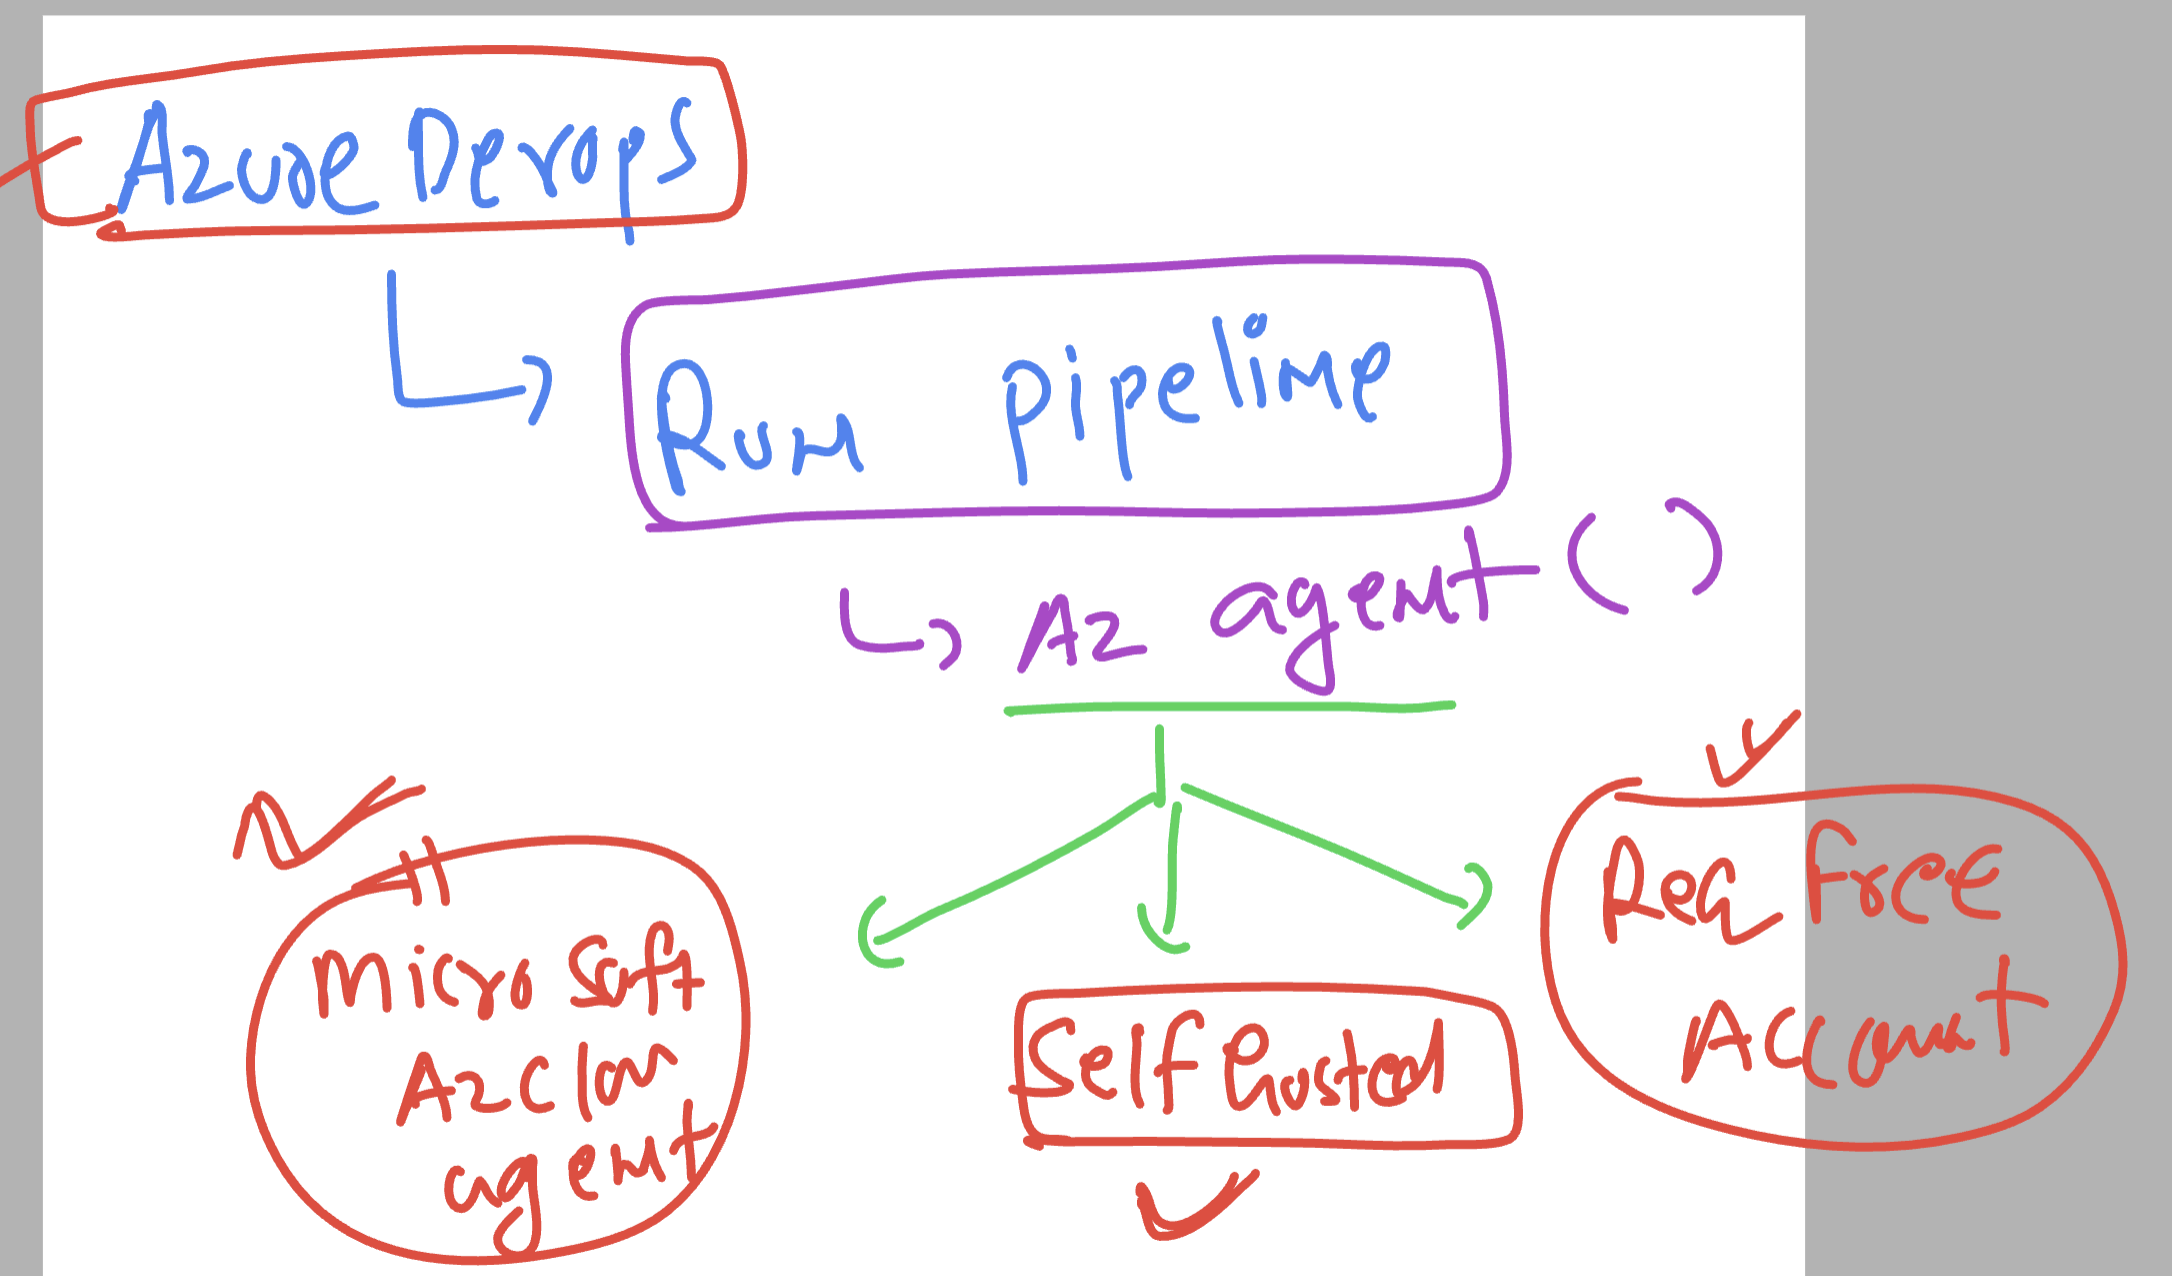 Azure Devops
Run Pipeline
Az agent ( )
Microsoft
Az
agent
Self hosted
Req Free
Account